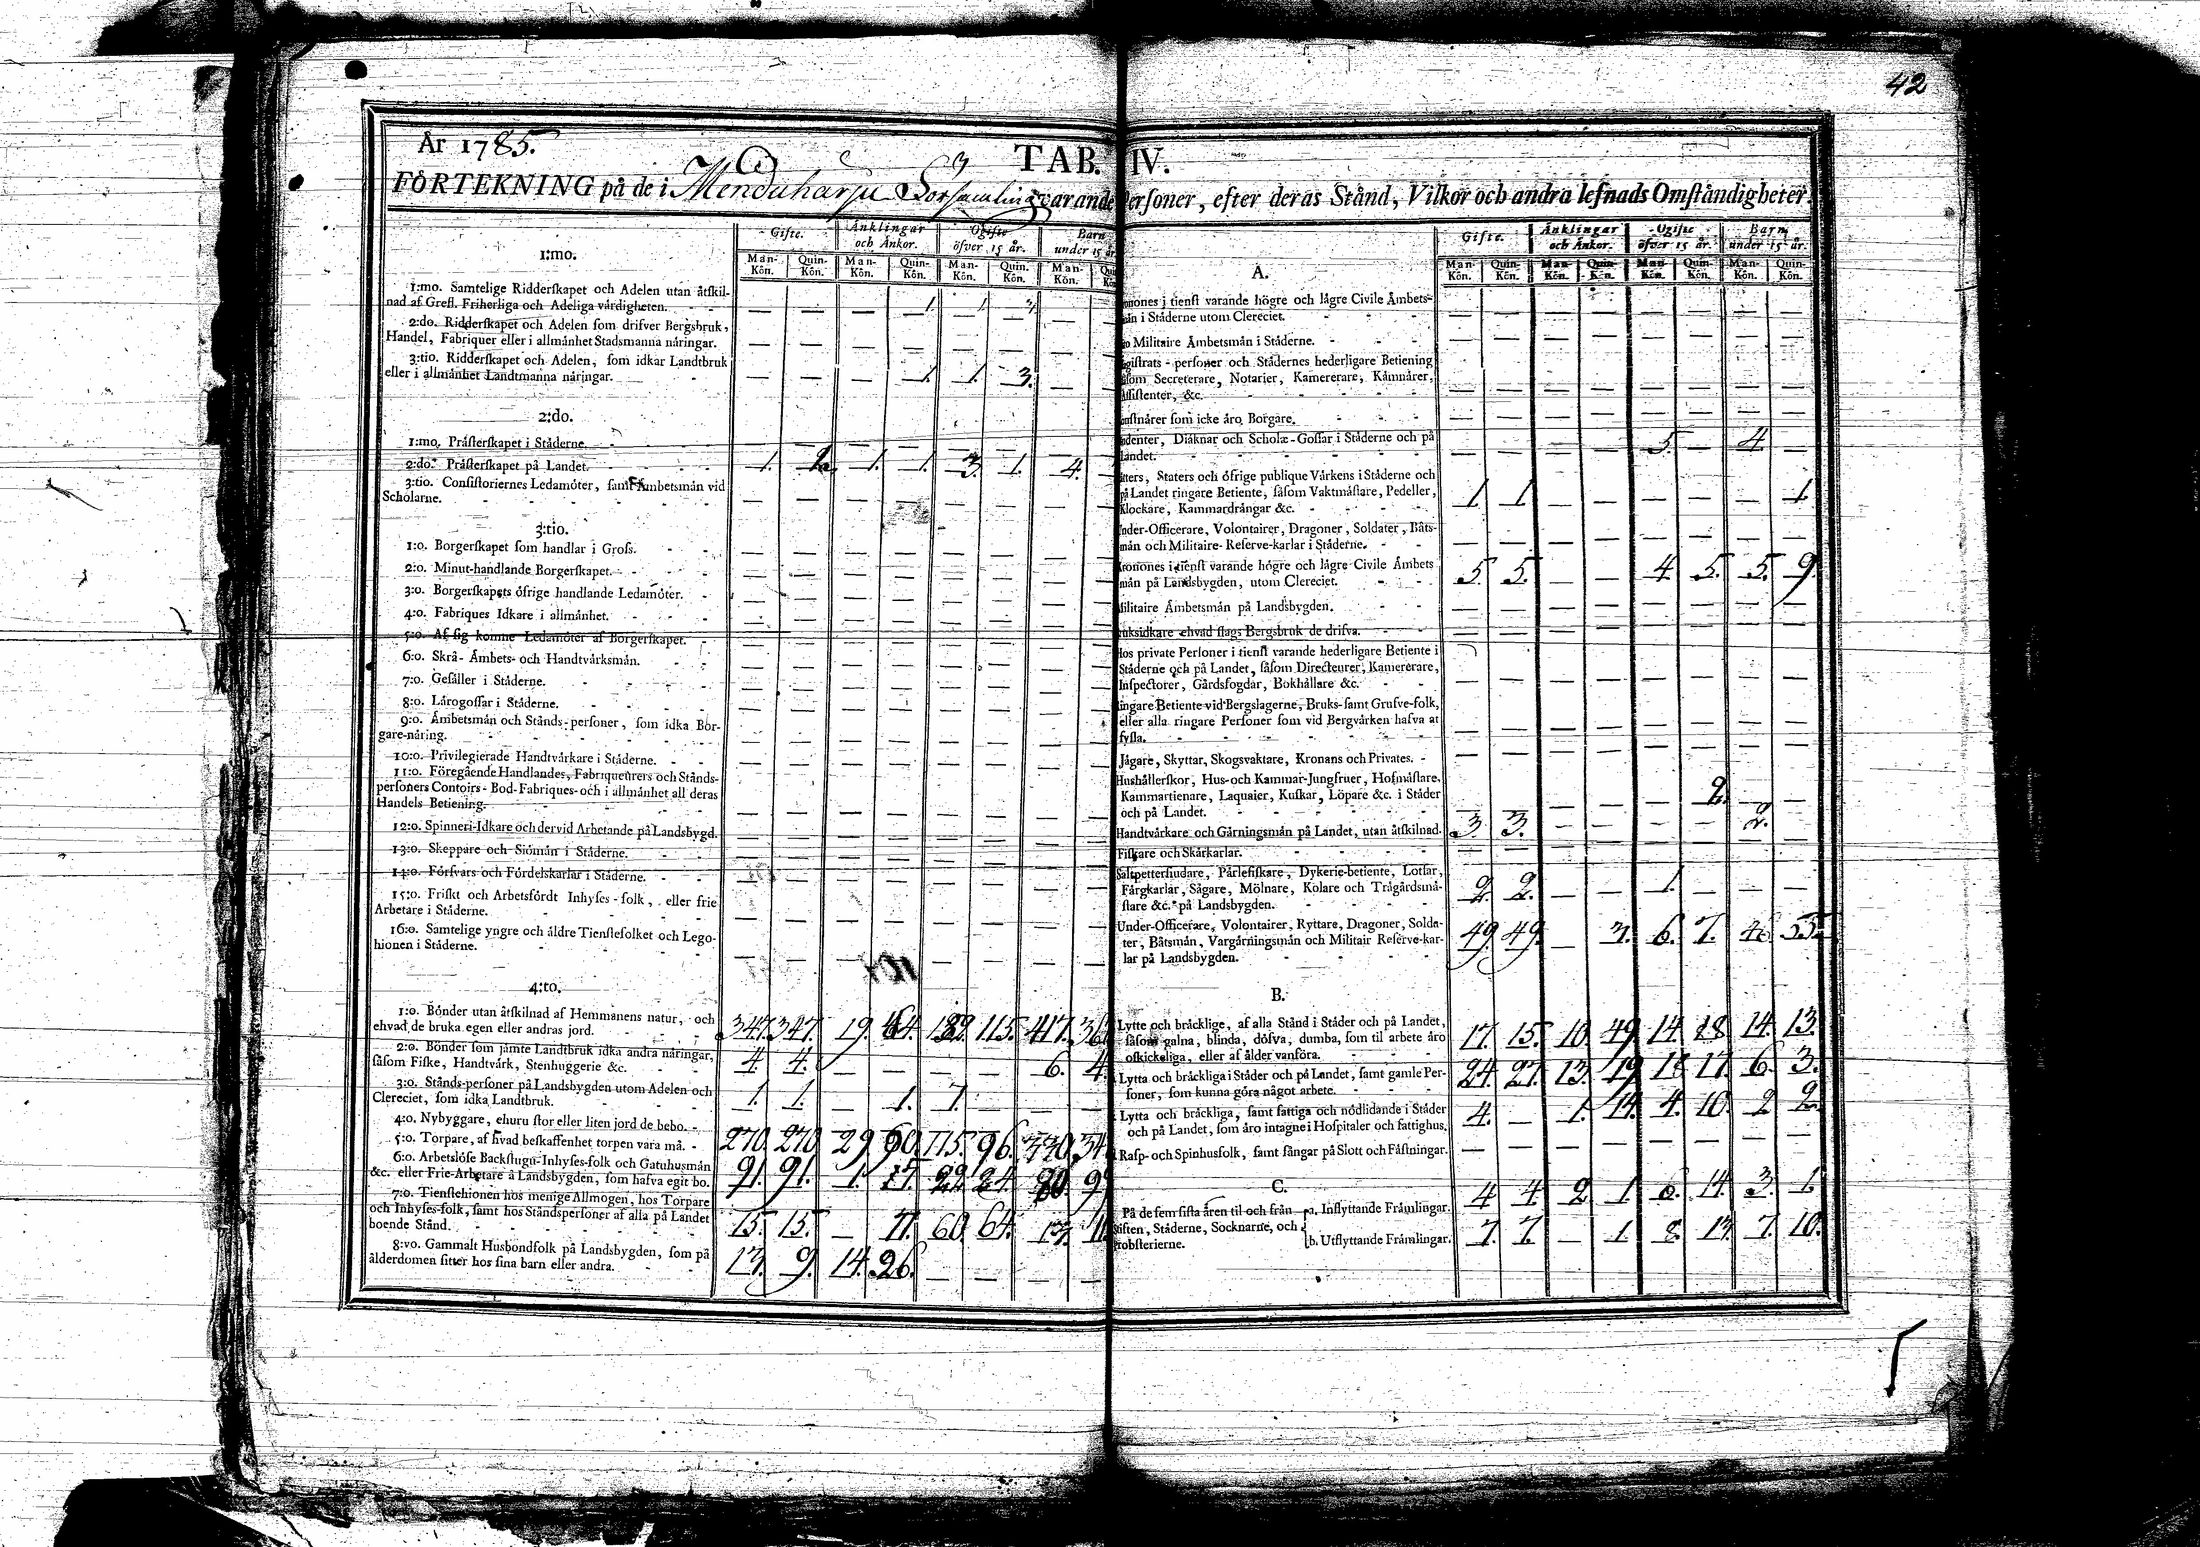 42
År 1785.
TAB. IV.
FÖRTEKNING på de i Menduharju Församling varande Personer, efter deras Stånd, Vilkor och andra lefnads Omständigheter.
Gifte. Änklingar och Änkor. Ogifte öfver 15 år. Barn under 15 år.
Man-Kön. Quin-Kön. Man-Kön. Quin-Kön. Man-Kön. Quin-Kön. Man-Kön.
1:mo.
1:mo. Samtelige Ridderskapet och Adelen utan åtskil-
nad af Grefl. Friherliga och Adeliga värdigheten. — — — 1. 1. 3. —
2:do. Ridderskapet och Adelen som drifver Bergsbruk,
Handel, Fabriquer eller i allmänhet Stadsmanna näringar. — — — — — — —
3:tio. Ridderskapet och Adelen, som idkar Landtbruk
eller i allmänhet Landtmanna näringar. — — — 1. 1. 3. —
2:do.
1:mo. Prästerskapet i Städerne. — — — — — — —
2:do. Prästerskapet på Landet. 1. 2. 1. 1. 3. 1. 4.
3:tio. Consistoriernes Ledamöter, samt Ämbetsmän vid
Scholarne. — — — — — — —
3:tio.
1:o. Borgerskapet som handlar i Gross. — — — — — — —
2:o. Minut-handlande Borgerskapet. — — — — — — —
3:o. Borgerskapets öfrige handlande Ledamöter. — — — — — — —
4:o. Fabriques Idkare i allmänhet. — — — — — — —
5:o. Af sig komne Ledamöter af Borgerskapet. — — — — — — —
6:o. Skrå- Ämbets- och Handtvärksmän. — — — — — — —
7:o. Gesäller i Städerne. — — — — — — —
8:o. Lärogossar i Städerne. — — — — — — —
9:o. Ämbetsmän och Stånds-personer, som idka Bor-
gare-näring. — — — — — — —
10:o. Privilegierade Handtvärkare i Städerne. — — — — — — —
11:o. Föregående Handlandes, Fabriqueurers och Stånds-
personers Contoirs- Bod- Fabriques- och i allmänhet all deras
Handels Betiening. — — — — — — —
12:o. Spinneri-Idkare och dervid Arbetande på Landsbygd. — — — — — — —
13:o. Skeppare och Siömän i Städerne. — — — — — — —
14:o. Försvars och Fördelskarlar i Städerne. — — — — — — —
15:o. Friskt och Arbetsfördt Inhyses-folk, eller frie
Arbetare i Städerne. — — — — — — —
16:o. Samtelige yngre och äldre Tienstefolket och Lego-
hionen i Städerne. — — — — — — —
4:to.
1:o. Bönder utan åtskilnad af Hemmanens natur, och
ehvad de bruka egen eller andras jord. 347. 347. 19. 64. 115. 417.
2:o. Bönder som jämte Landtbruk idka andra näringar,
såsom Fiske, Handtvärk, Stenhuggerie &c. 4. 4. — — — — 6. 4.
3:o. Stånds-personer på Landsbygden utom Adelen och
Clereciet, som idka Landtbruk. 1. 1. — 1. 7. — —
4:o. Nybyggare, ehuru stor eller liten jord de bebo. — — — — — — —
5:o. Torpare, af hvad beskaffenhet torpen vara må. 270. 270. 29. 90. 115. 96. 330.
6:o. Arbetslöse Backstugu-Inhyses-folk och Gatuhusmän
&c. eller Frie-Arbetare å Landsbygden, som hafva egit bo. 91. 91. 1. 17. 22. 24. 80.
7:o. Tienstehionen hos menige Allmogen, hos Torpare
och Inhyses-folk, samt hos Ståndspersoner af alla på Landet
boende Stånd. 15. 15. — 11. 60. 64. 13.
8:vo. Gammalt Husbondfolk på Landsbygden, som på
ålderdomen sitter hos sina barn eller andra. 13. 9. 14. 26. — — —
Gifte. Änklingar och Änkor. Ogifte öfver 15 år. Barn under 15 år.
Man-Kön. Quin-Kön. Man-Kön. Quin-Kön. Man-Kön. Quin-Kön. Man-Kön. Quin-Kön.
A.
i tienst varande högre och lägre Civile Ämbets-
i Städerne utom Clereciet. — — — — — — — —
Militaire Ämbetsmän i Städerne. — — — — — — — —
personer och Städernes hederligare Betiening
Secreterare, Notarier, Kamererare, Kämnärer,
&c. — — — — — — — —
som icke äro Borgare. — — — — — — — —
Diäknar och Scholæ-Gossar i Städerne och på
Landet. — — — — 5. — 4. —
Staters och öfrige publique Värkens i Städerne och
på Landet ringare Betiente, såsom Vaktmästare, Pedeller,
Klockare, Kammardrängar &c. 1 1. — — — — — 1.
Under-Officerare, Volontairer, Dragoner, Soldater, Båts-
män och Militaire-Reserve-karlar i Städerne. — — — — — — — —
Kronones i tienst varande högre och lägre Civile Ämbets
män på Landsbygden, utom Clereciet. 5 5. — — 4. 5. 5. 9.
Militaire Ämbetsmän på Landsbygden. — — — — — — — —
Bruksidkare ehvad slags Bergsbruk de drifva. — — — — — — — —
Hos private Personer i tienst varande hederligare Betiente i
Städerne och på Landet, såsom Directeurer, Kamererare,
Inspectorer, Gårdsfogdar, Bokhållare &c. — — — — — — — —
Ringare Betiente vid Bergslagerne, Bruks- samt Grufve-folk,
eller alla ringare Personer som vid Bergvärken hafva at
sysla. — — — — — — — —
Jägare, Skyttar, Skogsvaktare, Kronans och Privates. — — — — — — — —
Hushållerskor, Hus- och Kammar-Jungfruer, Hofmästare,
Kammartienare, Laquaier, Kuskar, Löpare &c. i Städer
och på Landet. — — — — — 2. — —
Handtvärkare och Gärningsmän på Landet, utan åtskilnad. 3. 3. — — — — 2. —
Fiskare och Skärkarlar. — — — — — — — —
Saltpettersiudare, Pärlefiskare, Dykerie-betiente, Lotsar,
Färgkarlar, Sågare, Mölnare, Kolare och Trägårdsmä-
stare &c. på Landsbygden. 2. 2. — — 1. — — —
Under-Officerare, Volontairer, Ryttare, Dragoner, Solda-
ter, Båtsmän, Vargärningsmän och Militair Reserve-kar-
lar på Landsbygden. 49. 49. — 3. 6. 7. 46 55.
B.
Lytte och bräcklige, af alla Stånd i Städer och på Landet,
såsom galna, blinda, döfva, dumba, som til arbete äro
oskickeliga, eller af ålder vanföra. 17. 15. 10. 49. 14. 18. 14. 13.
Lytta och bräckliga i Städer och på Landet, samt gamle Per-
soner, som kunna göra något arbete. 24. 27. 13. 19. 18. 17. 6. 3.
Lytta och bräckliga, samt fattiga och nödlidande i Städer
och på Landet, som äro intagne i Hospitaler och fattighus. 4. — 1. 14. 4. 10. 2 2.
Rasp- och Spinhusfolk, samt fångar på Slott och Fästningar. — — — — — — — —
C.
På de fem sista åren til och från
Stiften, Städerne, Socknarne, och
Probsterierne.
a. Inflyttande Främlingar. 4 4. 2 1. 6. 14. 3. 1.
b. Utflyttande Främlingar. 7. 7. — 1. 8. 13. 7. 10.